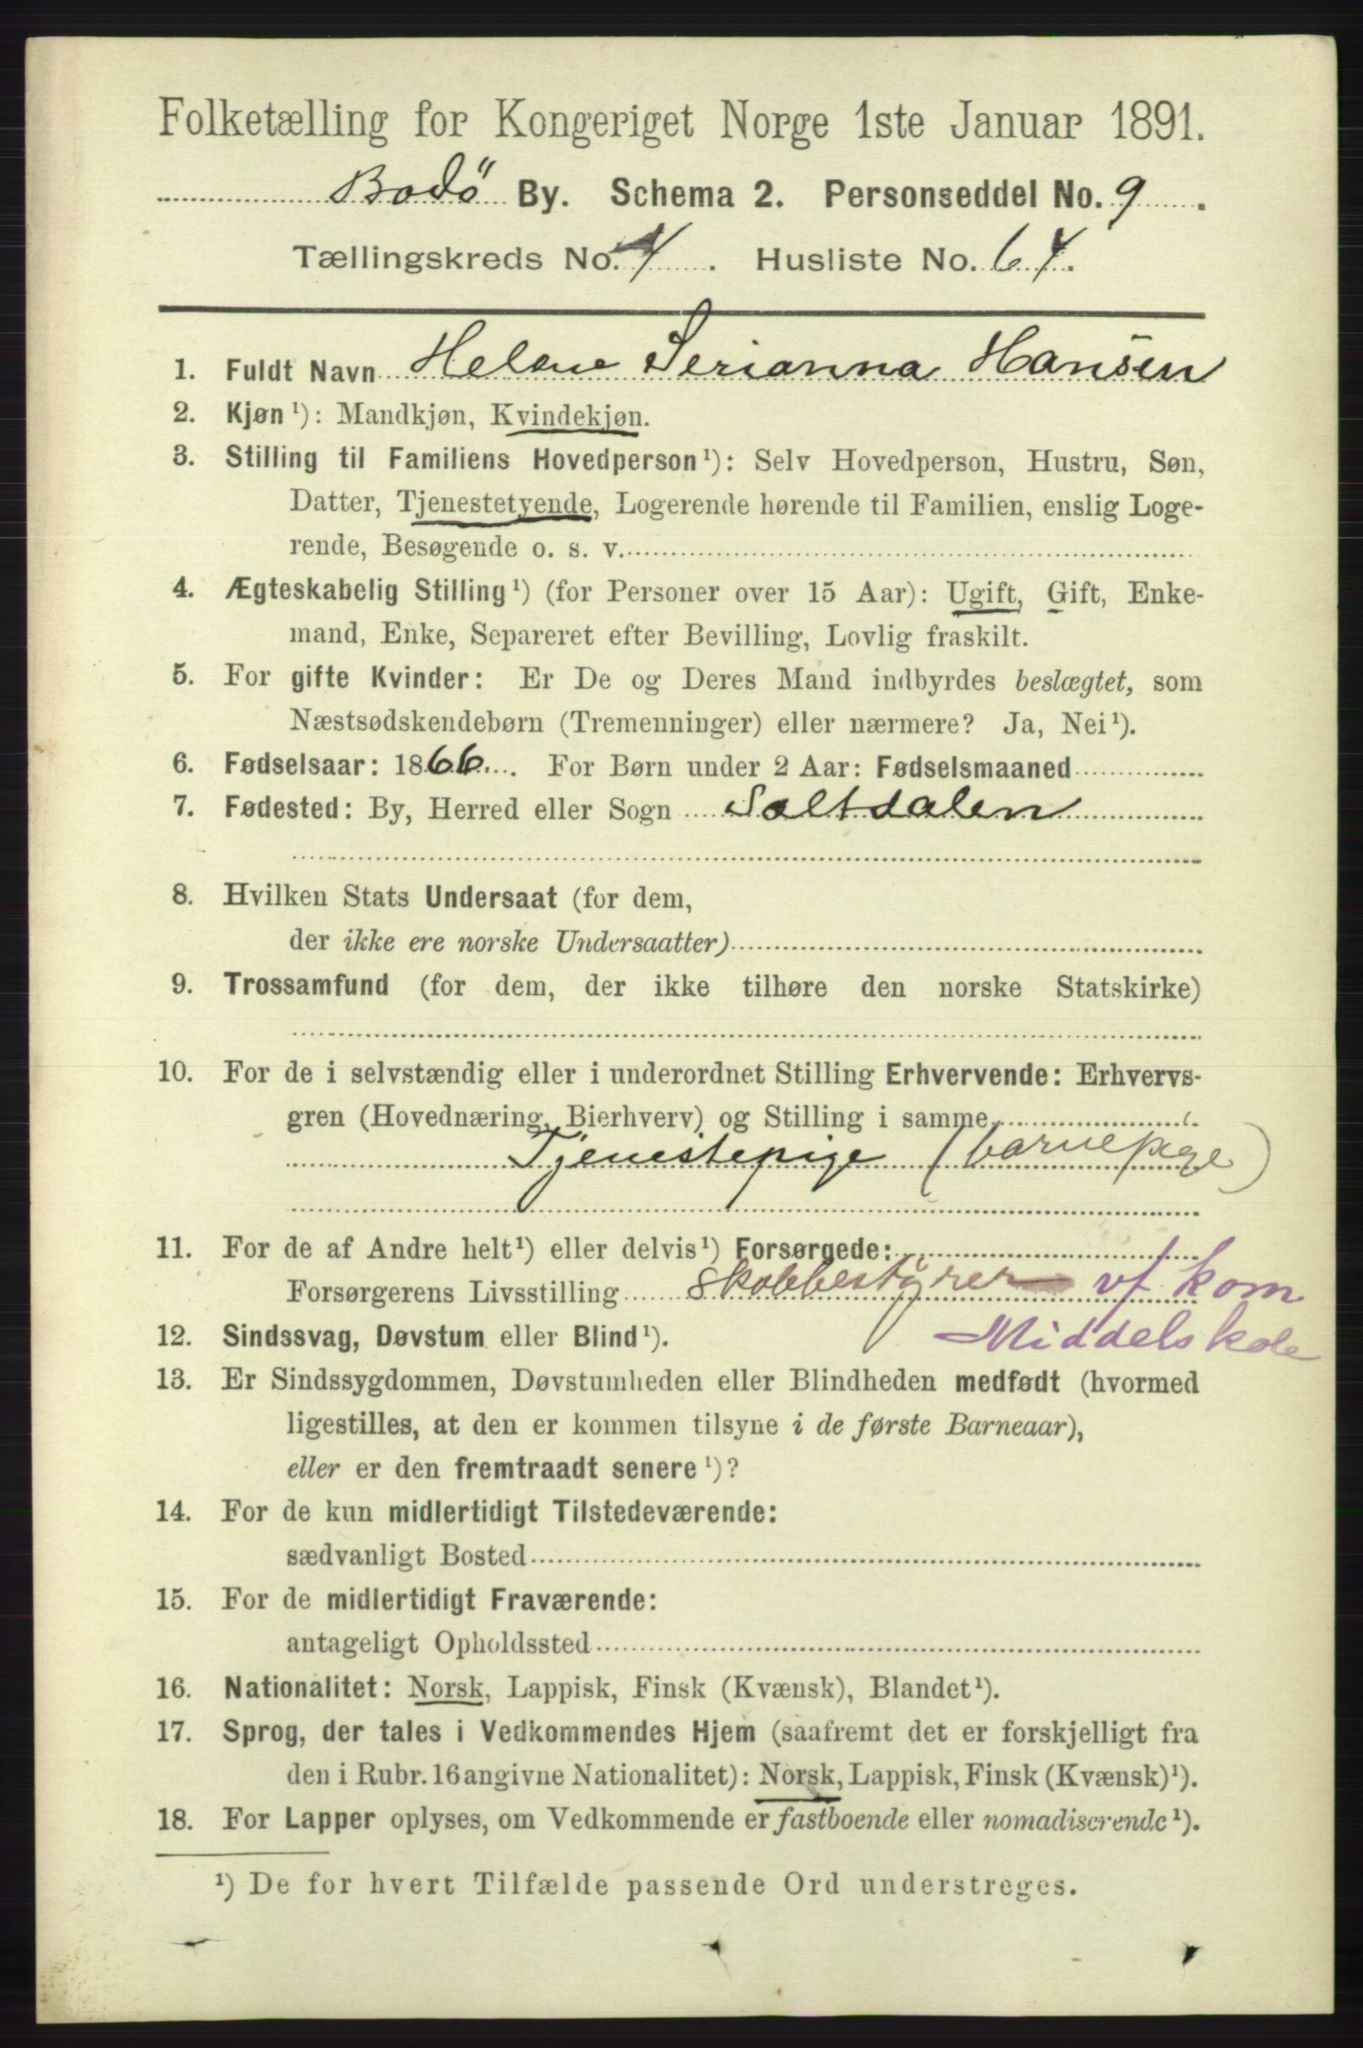 Folketælling for Kongeriget Norge 1ste Januar 1891.
Bodö By. Schema 2. Personseddel No. 9.
Tællingskreds No. 4. Husliste No. 64.
1. Fuldt Navn Helene Serianna Hansen
2. Kjøn¹): Mandkjøn, Kvindekjøn.
3. Stilling til Familiens Hovedperson¹): Selv Hovedperson, Hustru, Søn,
Datter, Tjenestetyende, Logerende hørende til Familien, enslig Loge-
rende, Besøgende o. s. v.
4. Ægteskabelig Stilling¹) (for Personer over 15 Aar): Ugift, Gift, Enke-
mand, Enke, Separeret efter Bevilling, Lovlig fraskilt.
5. For gifte Kvinder: Er De og Deres Mand indbyrdes beslægtet, som
Næstsødskendebørn (Tremenninger) eller nærmere? Ja, Nei¹).
6. Fødselsaar: 1866. For Børn under 2 Aar: Fødselsmaaned
7. Fødested: By, Herred eller Sogn Saltdalen
8. Hvilken Stats Undersaat (for dem,
der ikke ere norske Undersaatter)
9. Trossamfund (for dem, der ikke tilhøre den norske Statskirke)
10. For de i selvstændig eller i underordnet Stilling Erhvervende: Erhvervs-
gren (Hovednæring, Bierhverv) og Stilling i samme
Tjenestepige (barnepige)
11. For de af Andre helt¹) eller delvis¹) Forsørgede:
Forsørgerens Livsstilling Skolebestyrer vf kom
Middelskole
12. Sindssvag, Døvstum eller Blind¹).
13. Er Sindssygdommen, Døvstumheden eller Blindheden medfødt (hvormed
ligestilles, at den er kommen tilsyne i de første Barneaar),
eller er den fremtraadt senere¹)?
14. For de kun midlertidigt Tilstedeværende:
sædvanligt Bosted
15. For de midlertidigt Fraværende:
antageligt Opholdssted
16. Nationalitet: Norsk, Lappisk, Finsk (Kvænsk), Blandet¹).
17. Sprog, der tales i Vedkommendes Hjem (saafremt det er forskjelligt fra
den i Rubr. 16 angivne Nationalitet): Norsk, Lappisk, Finsk (Kvænsk)¹).
18. For Lapper oplyses, om Vedkommende er fastboende eller nomadiserende¹).
¹) De for hvert Tilfælde passende Ord understreges.